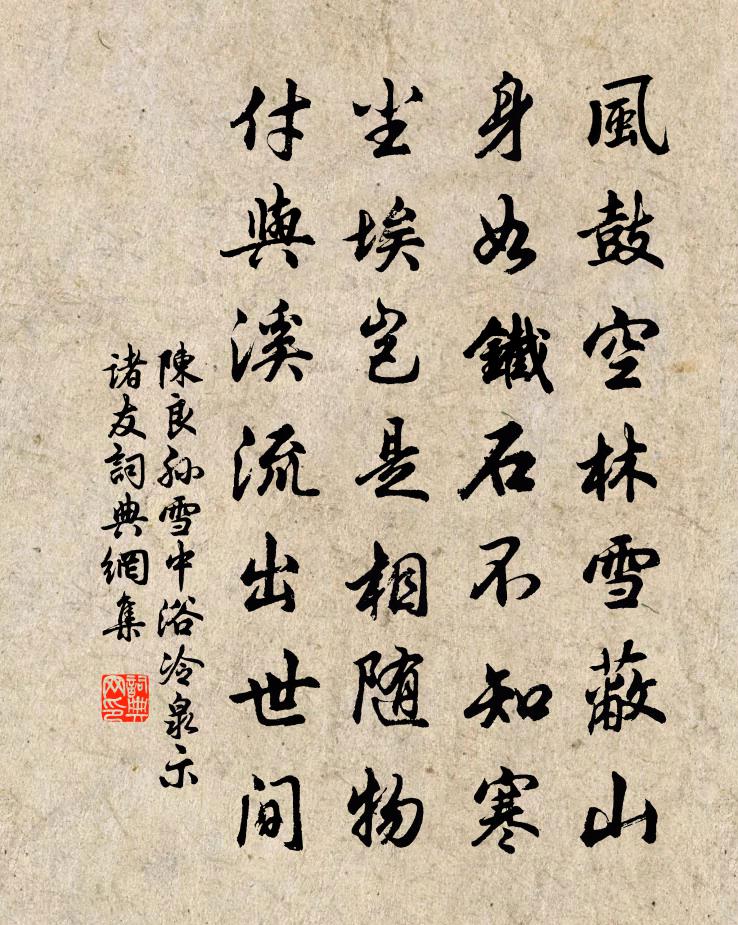 風鼓空林雪蔽山
身如鐵石不知寒
尘埃豈是相隨物
付與溪流出世間
陳良孙雪中浴冷泉示
诸友詞典網集
詞典网印